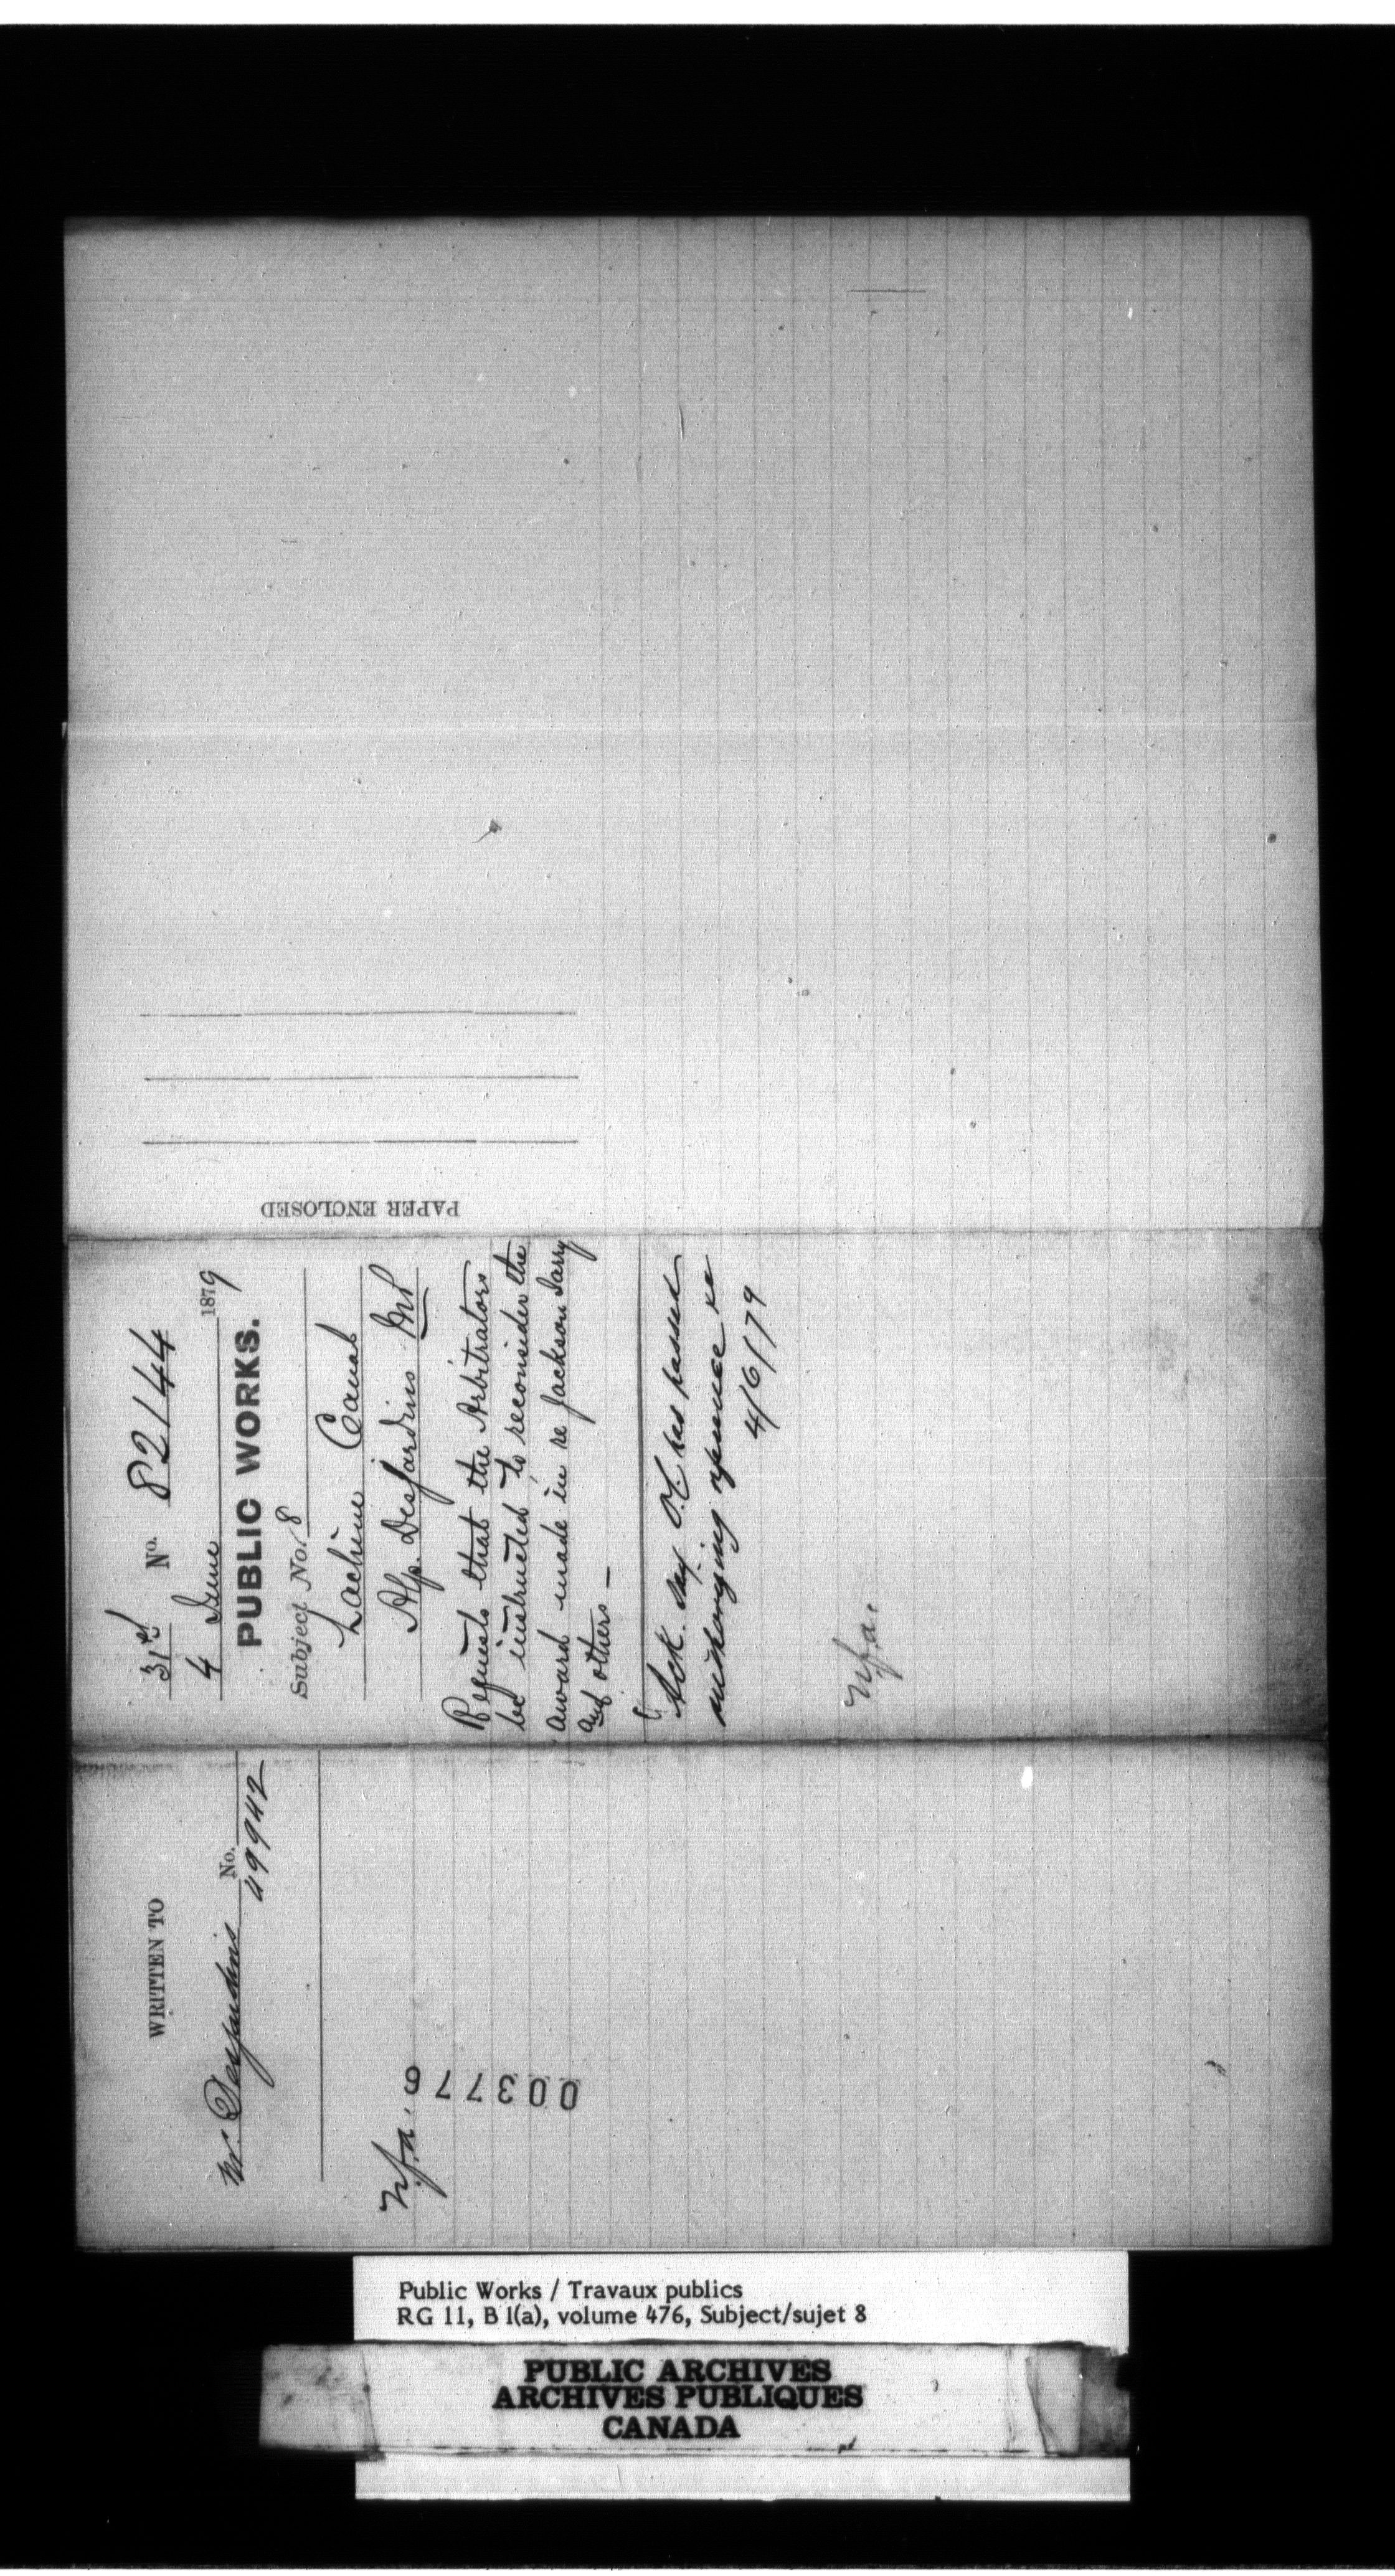 31st No. 82144
4 June 1879
PUBLIC WORKS.
Subject No. 8
Lachine Canal
Alp. Desjardins MP
Requests that the Arbitrators
be instructed to reconsider the
award made in re Jackson Jarry
and others —
Ack. Say O.C. has passed
authorizing
4/6/79
n.f.a.
PAPER ENCLOSED
WRITTEN TO
Mr. Desjardins No. 49942
n.f.a.
003776
Public Works / Travaux publics
RG 11, B 1(a), volume 476, Subject/sujet 8
PUBLIC ARCHIVES
ARCHIVES PUBLIQUES
CANADA